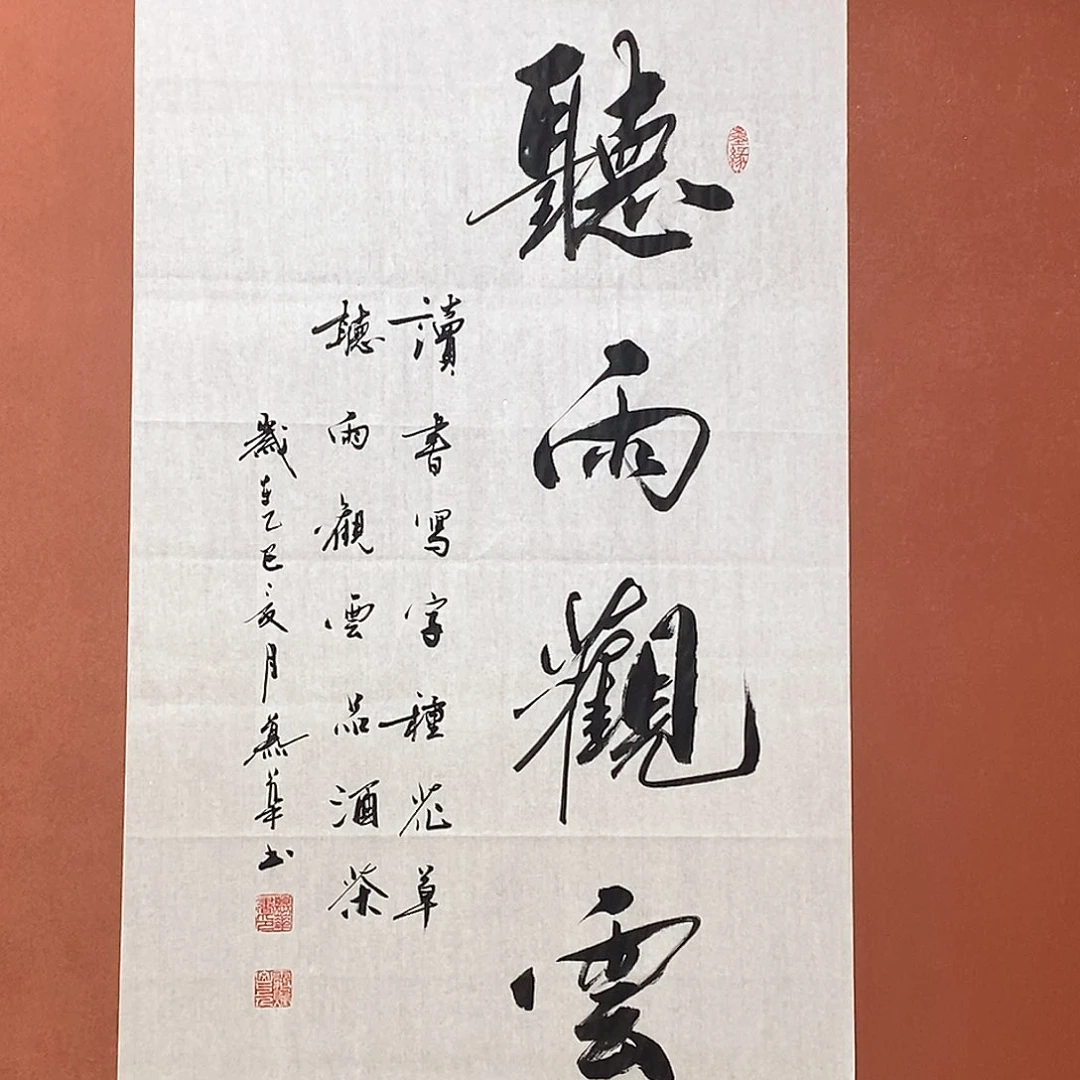 聽雨觀雲
讀書寫字種花草
聽雨觀雲品酒茶
歲在乙巳亥月慕華书
墨缘